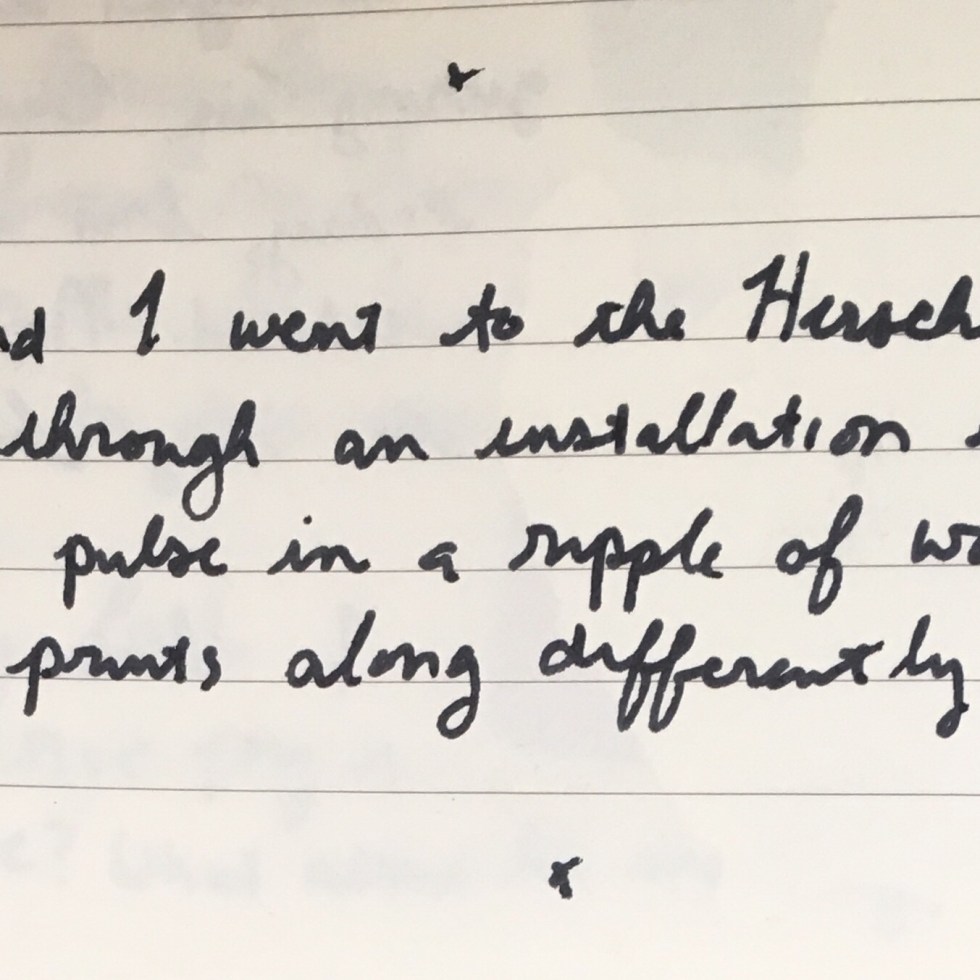 nd I went to the Hersch
through an installation
pulse in a ripple of wa
prints along differently